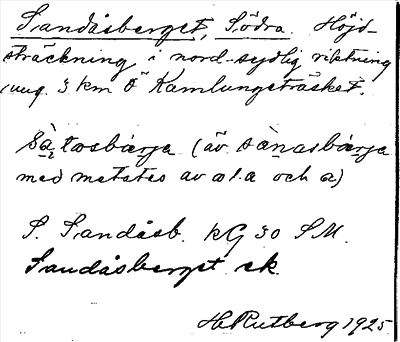 Sandåsberget, Södra. Höjd-
sträckning i nord-sydlig riktning
ung. 3 km Ö Kamlungeträsket.
(äv.
med metates av a
S. Sandåsb. KG 30 SM.
Sandåsberget ek.
H. Rutberg 1925